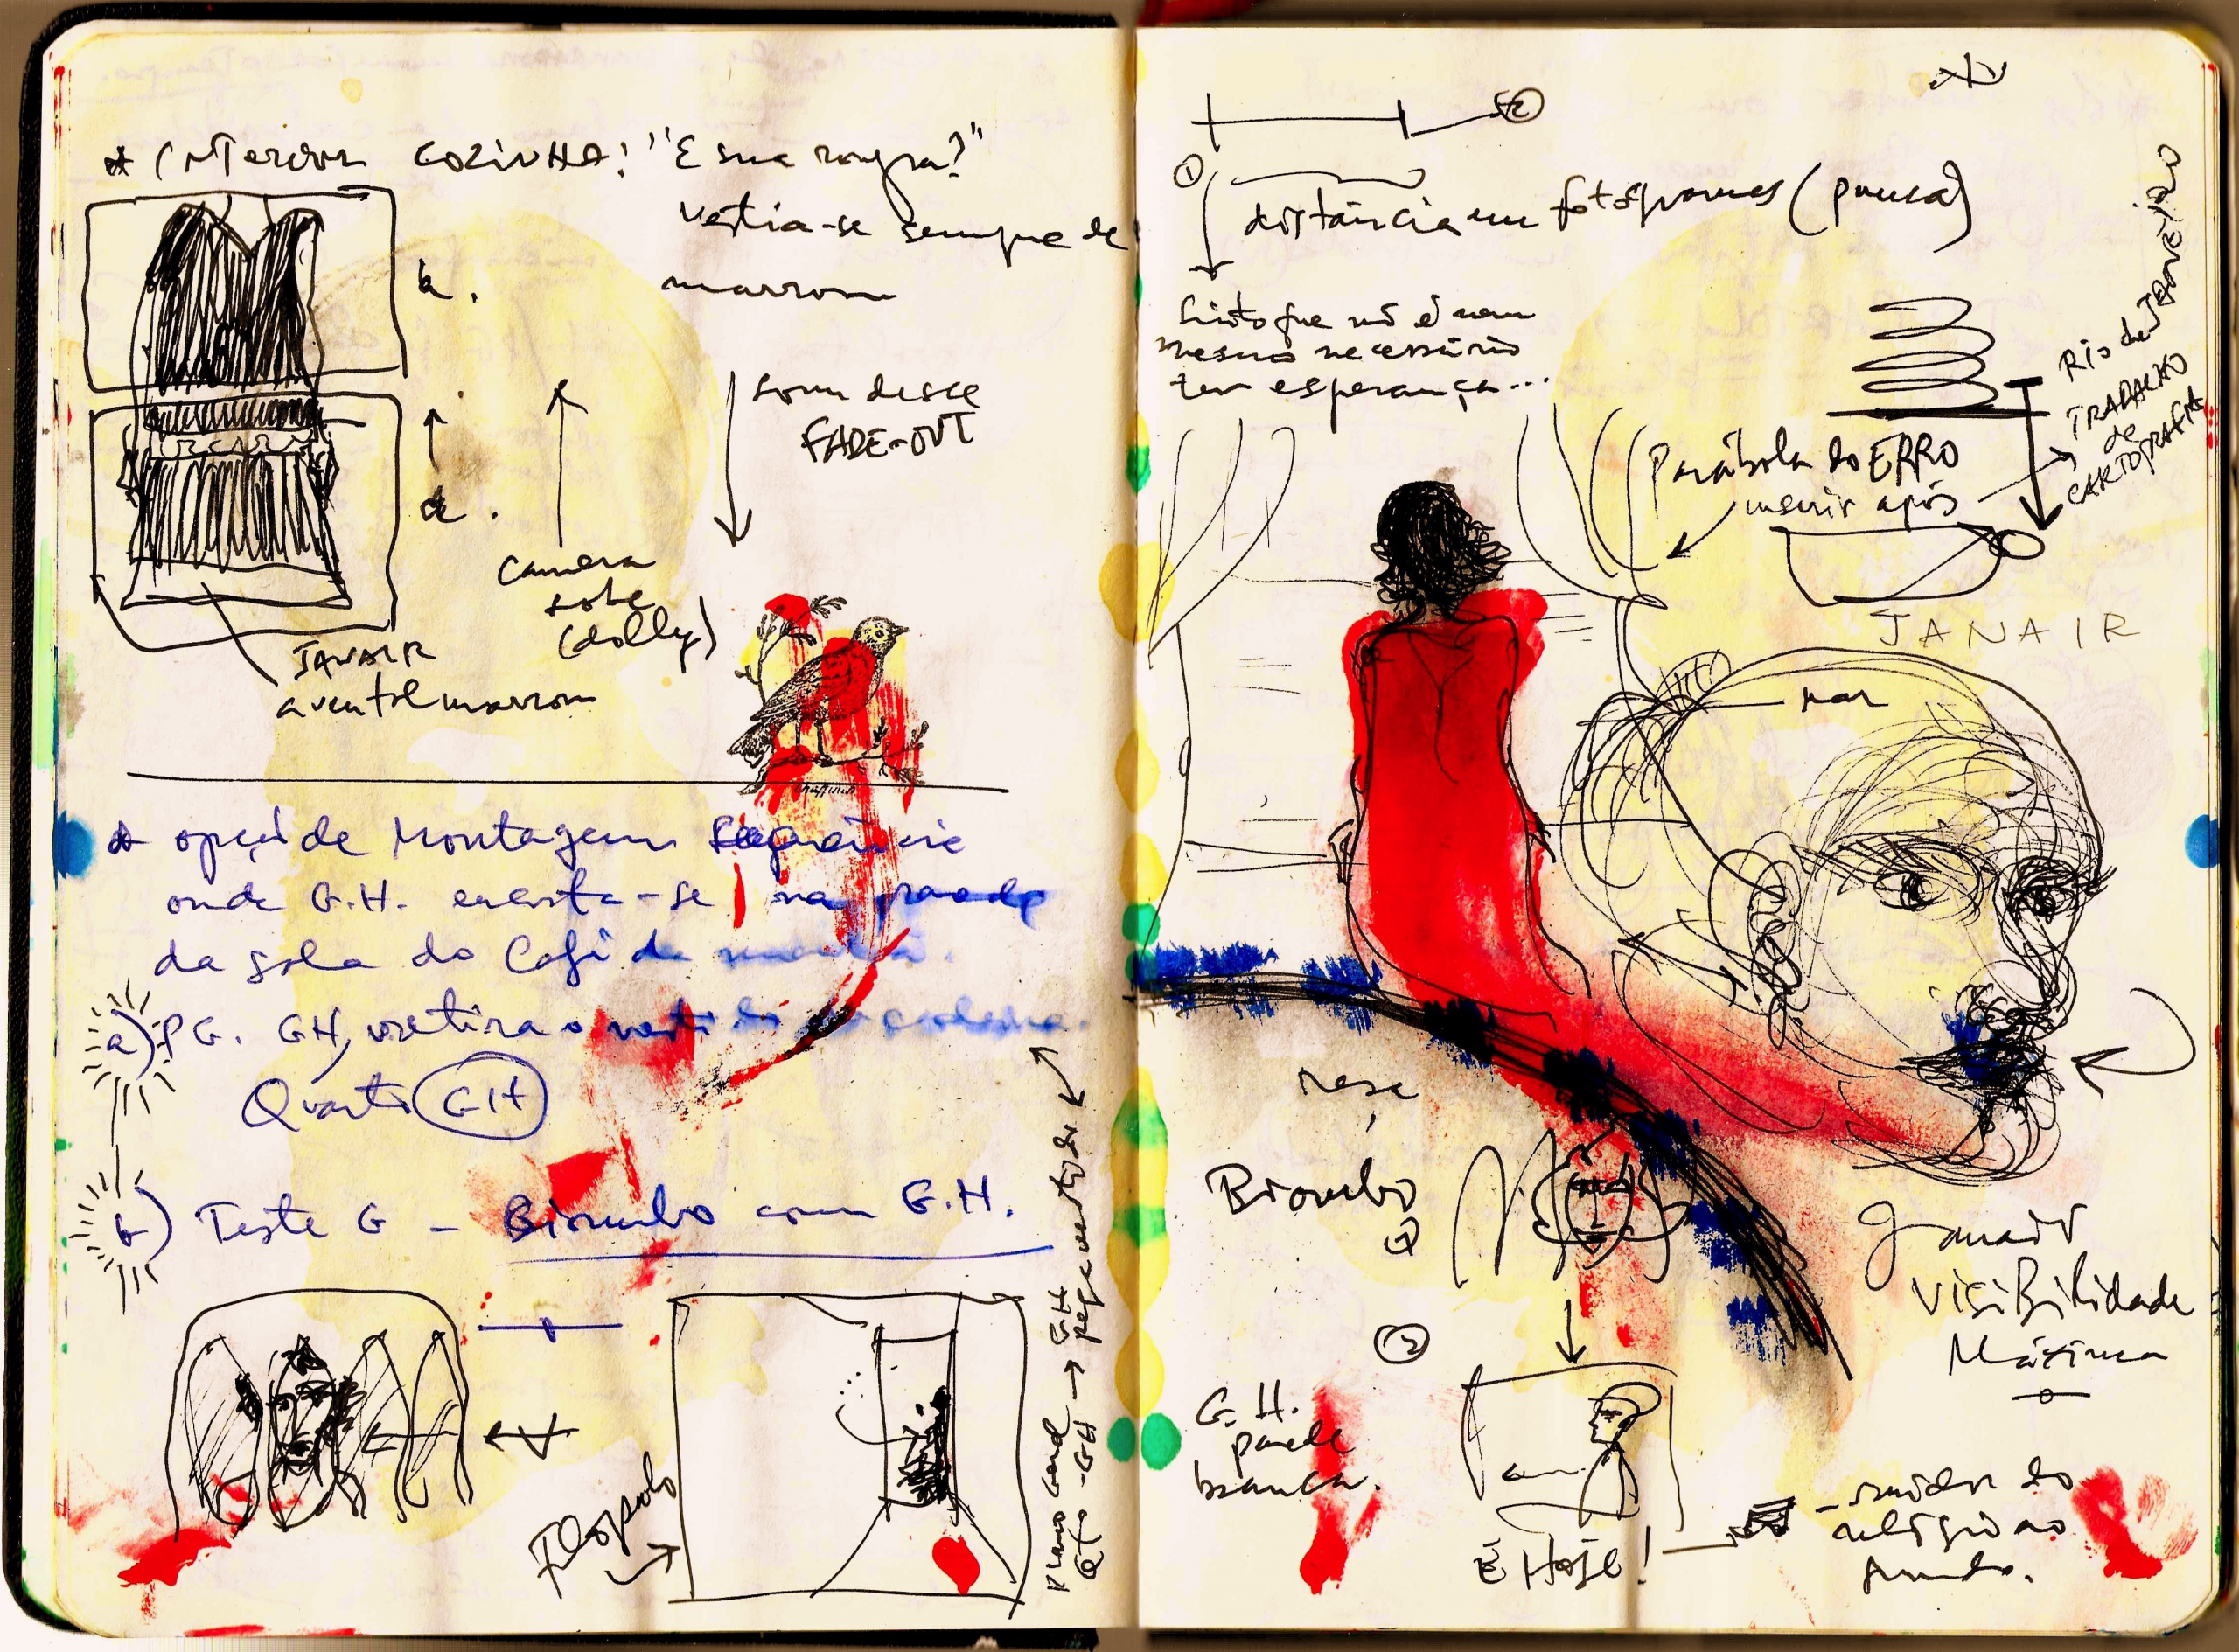 * INTERIOR COZINHA: "E sua roupa?"
vestia-se sempre de
marrom
b.
a.
som desce
FADE-OUT
camera
sobe
(dolly)
JANAIR
avental marrom
* opção de Montagem sequência
onde G.H. encosta-se na parede
da sala do Café da manhã.
a) PG. GH, retira o
Quarto GH
b) Teste G - Biombo com G.H.
Plano Geral → GH
Qto - GH → pega vestido
②
①
distância em fotogramas (pausa)
Sinto que não é nem
mesmo necessário
ter esperança...
Parábola do ERRO
inserir após
Rio de Janeiro
TRABALHO
de
CARTOGRAFIA
JANAIR
Biombo
G.H.
parede
branca.
É Hoje!
grande
visibilidade
Máxima
- ruidor do
relógio ao
fundo.